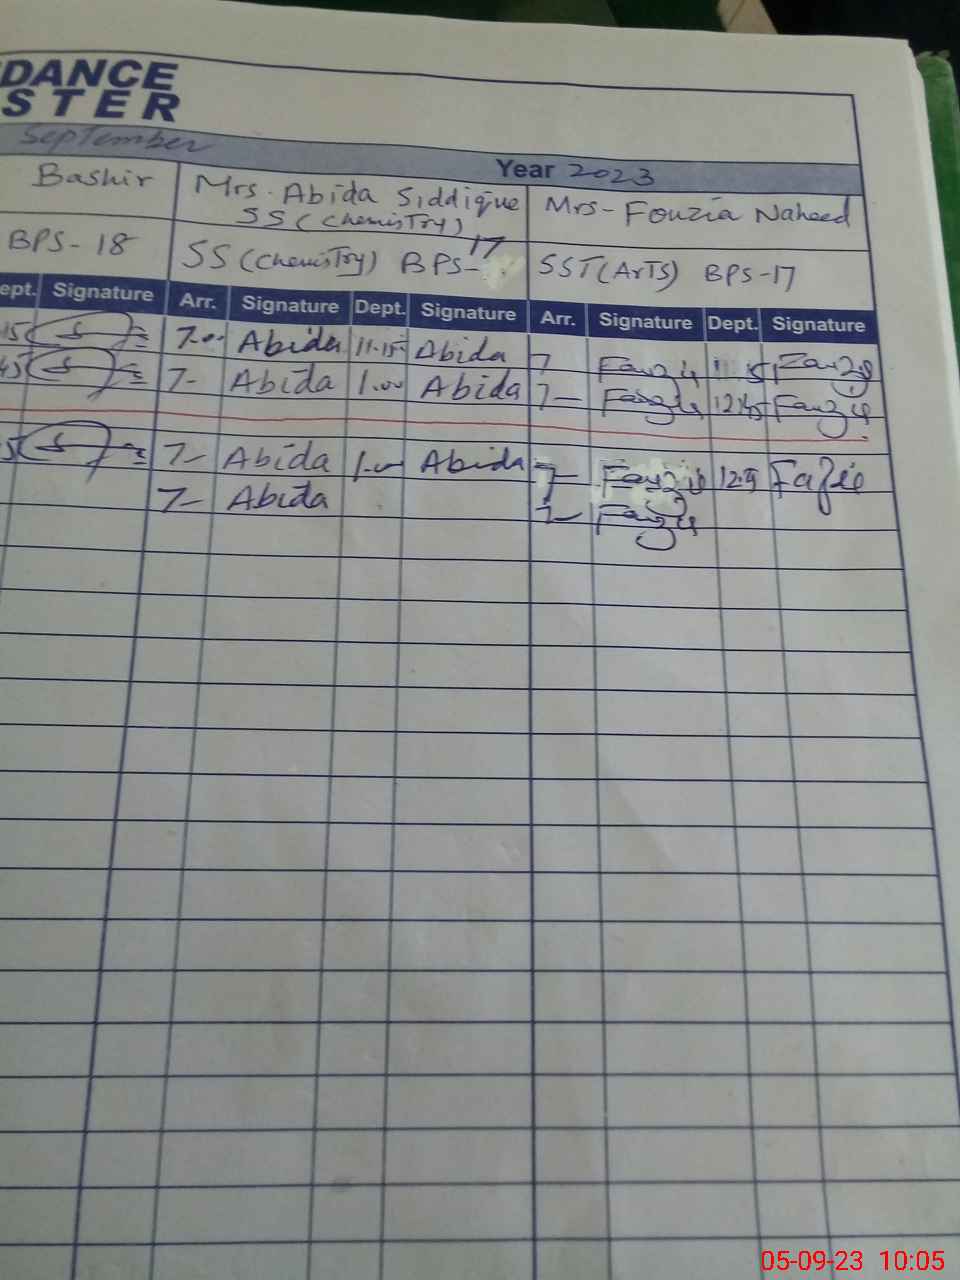 DANCE
STER
September
Year 2023
Bashir Mrs. Abida Siddique Mrs- Fouzia Naheed
SS (ChemisTry)
BPS- 18 SS (ChemisTry) BPS-17 SST (ArTS) BPS-17
ept. Signature Arr. Signature Dept. Signature Arr. Signature Dept. Signature
15 7.00 Abida 11.15 Abida 7
45 7- Abida 1.00 Abida 7- 12.45
5 7- Abida 1.00 Abida 7-
7- Abida 7-
05-09-23 10:05